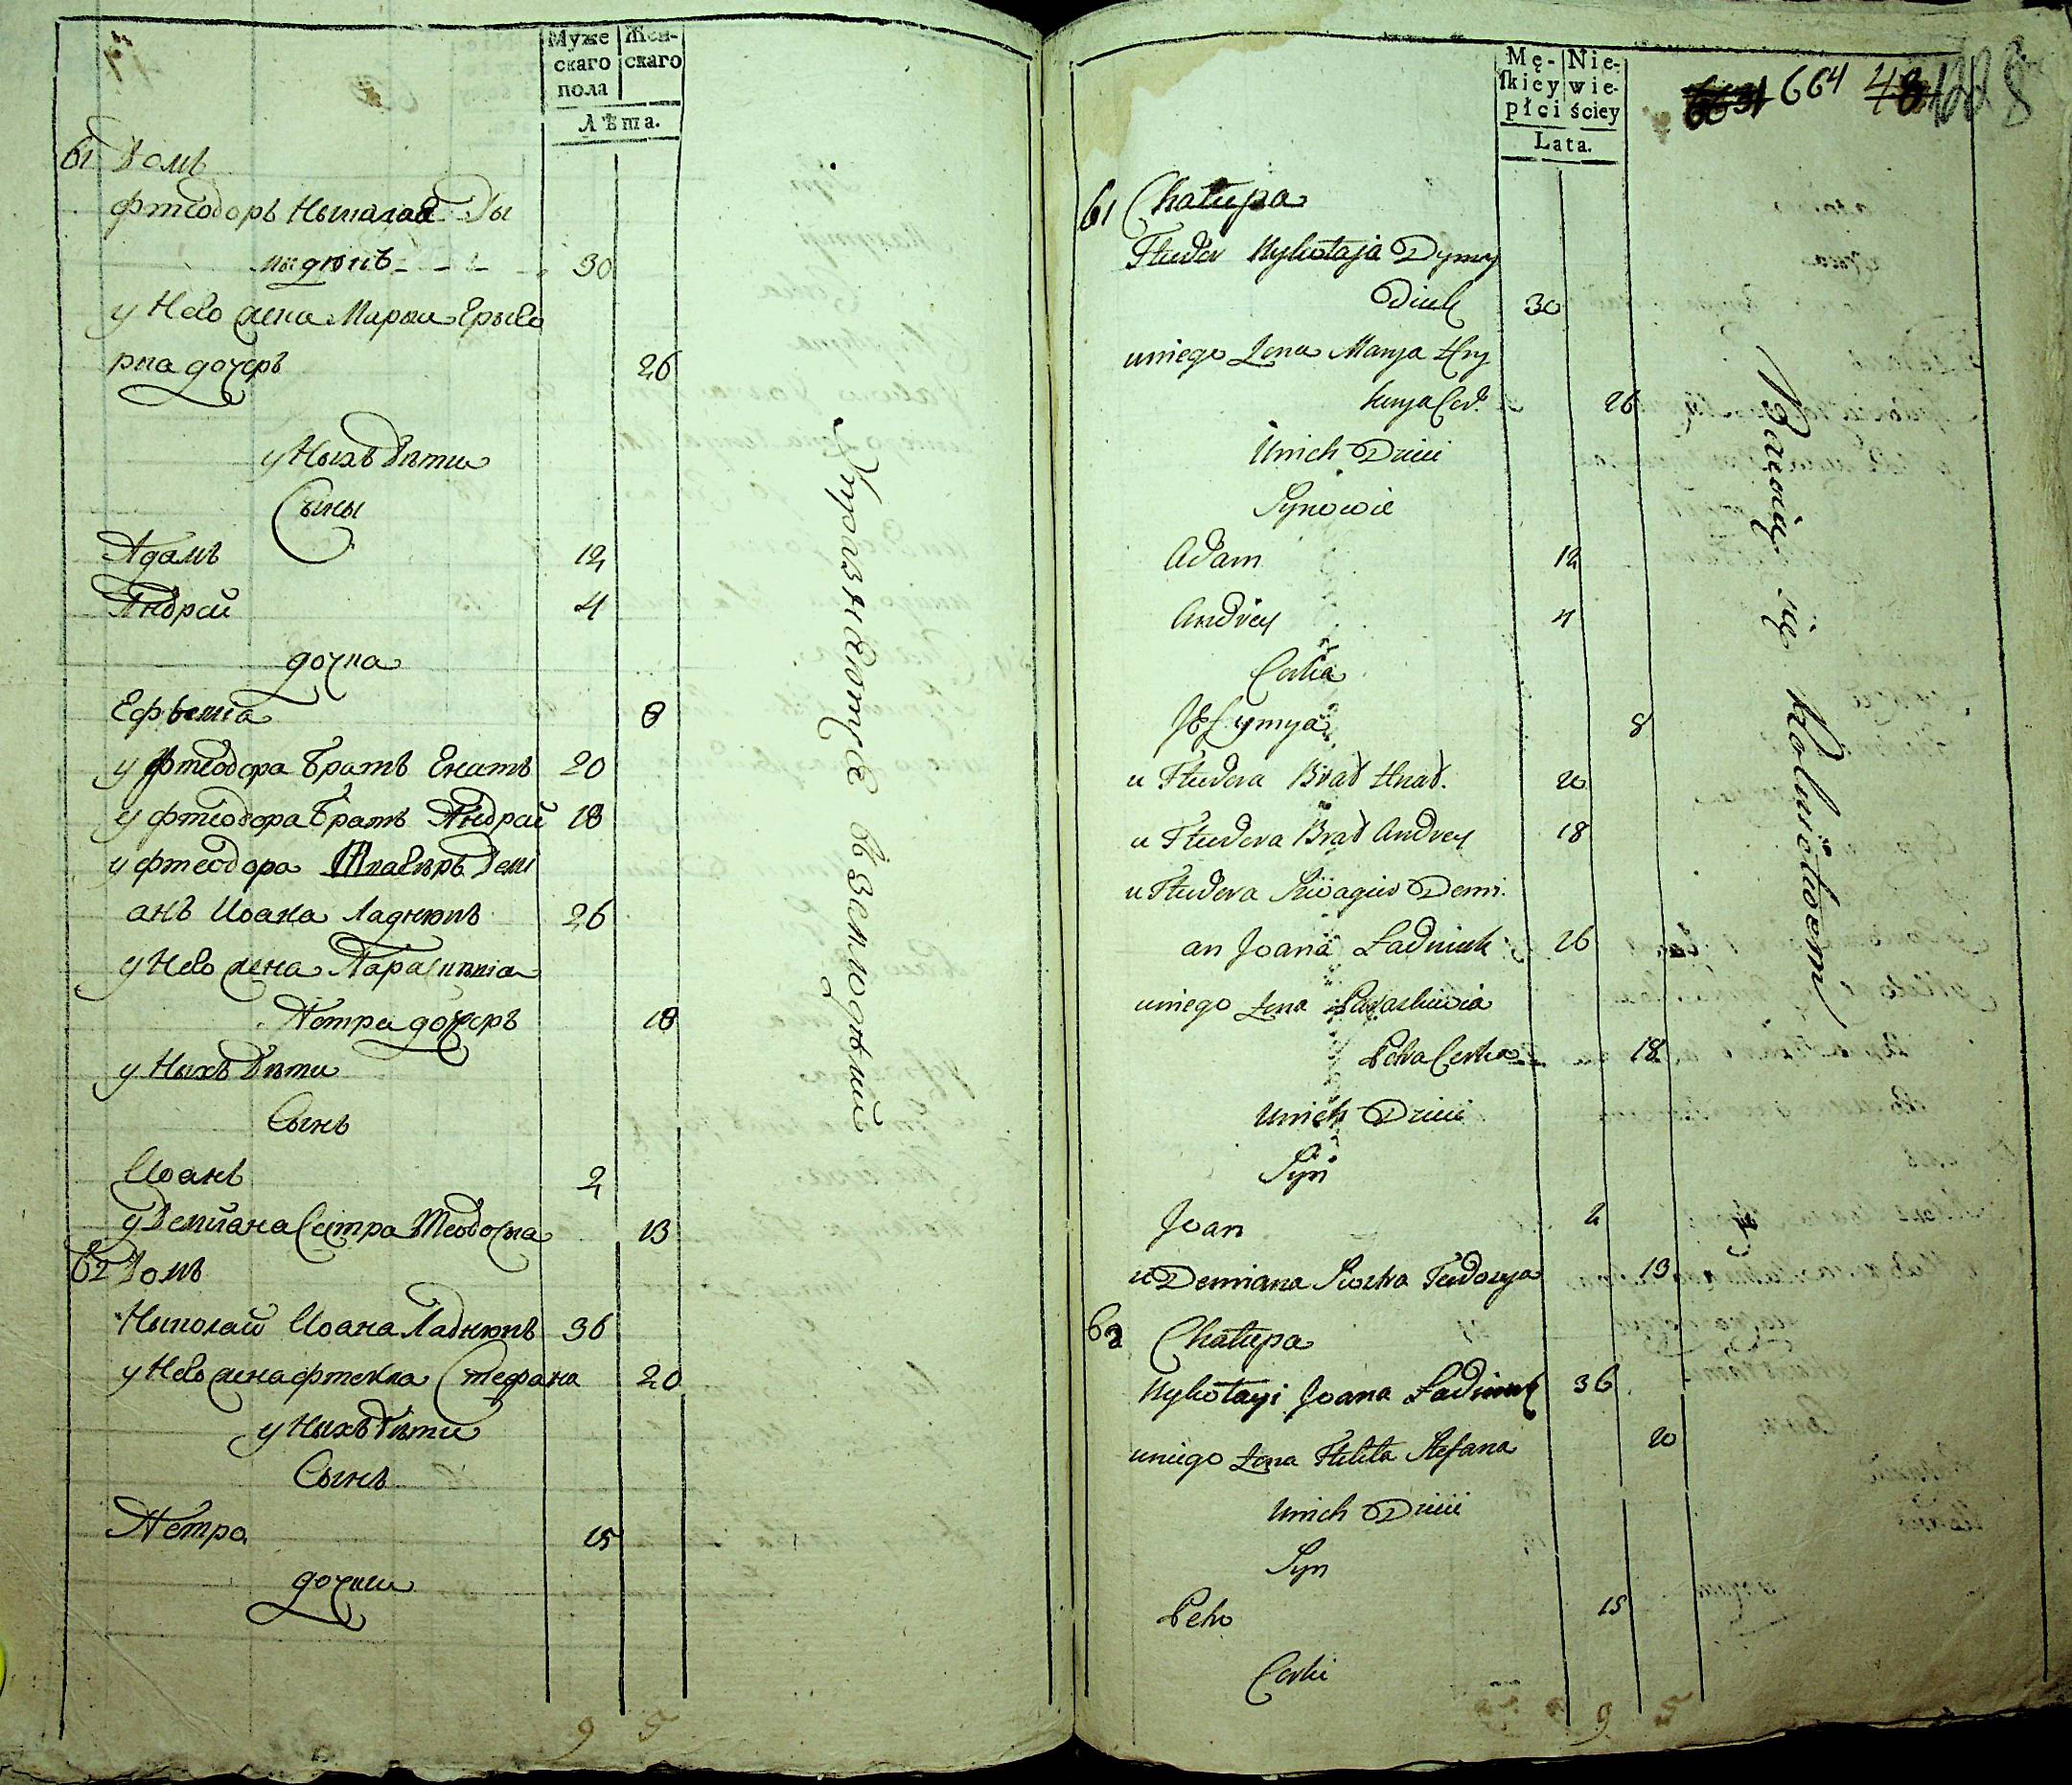 Муже
скаго
пола
Жен-
скаго
Лѣта.
61 Домъ
Фтеодоръ Ныколая Ды
мидюкъ 30
у Него жена Марыя Грыго
рка дочеръ 26
у Ныхъ Дѣти
Сыны
Адамъ 12
Андрей 4
дочка
Ефъемiа 8
у Фтеодора Братъ Гнатъ 20
у Фтеодора Братъ Андрей 18
у Фтеодора Швагеръ Деми
анъ Иоана Ладнюкъ 26
у Него жена Парасцевiа
Петра дочеръ 18
у Ныхъ Дѣти
Сынъ
Иоанъ 2
у Демiана Сестра Теодосыа 13
62 Домъ
Ныколай Иоана Ладнюкъ 36
у Него жена Фтекла Стефана 20
у Ныхъ Дѣти
Сынъ
Петро 15
дочки
Упражняютсе въ земледѣлий
9 5
Mę-
skiey
płci
Nie-
wie-
ściey
Lata.
664
61 Chałupa
Fteudor Mykołaja Dymy
diuk 30
uniego Żona Marya Hry
horya Cor. 26
Unich Dzieci
Synowie
Adam 12
Andrey 4
Corka
Jefymya 8
u Fteudora Brat Hnat. 20
u Fteudora Brat Andrey 18
u Fteudora Szwagier Demi
an Joana Ładniuk 26
uniego Żona Paraskiewia
Petra Corka 18
Unich Dzieci
Syn
Joan 2
u Demiana Siostra Teodosya 13
62 Chałupa
Mykołayi Joana Ładniuk 36
uniego Żona Ftekła Stefana 20
Unich Dzieci
Syn
Petro 15
Corki
Bawią się Rolnictwem
9 5